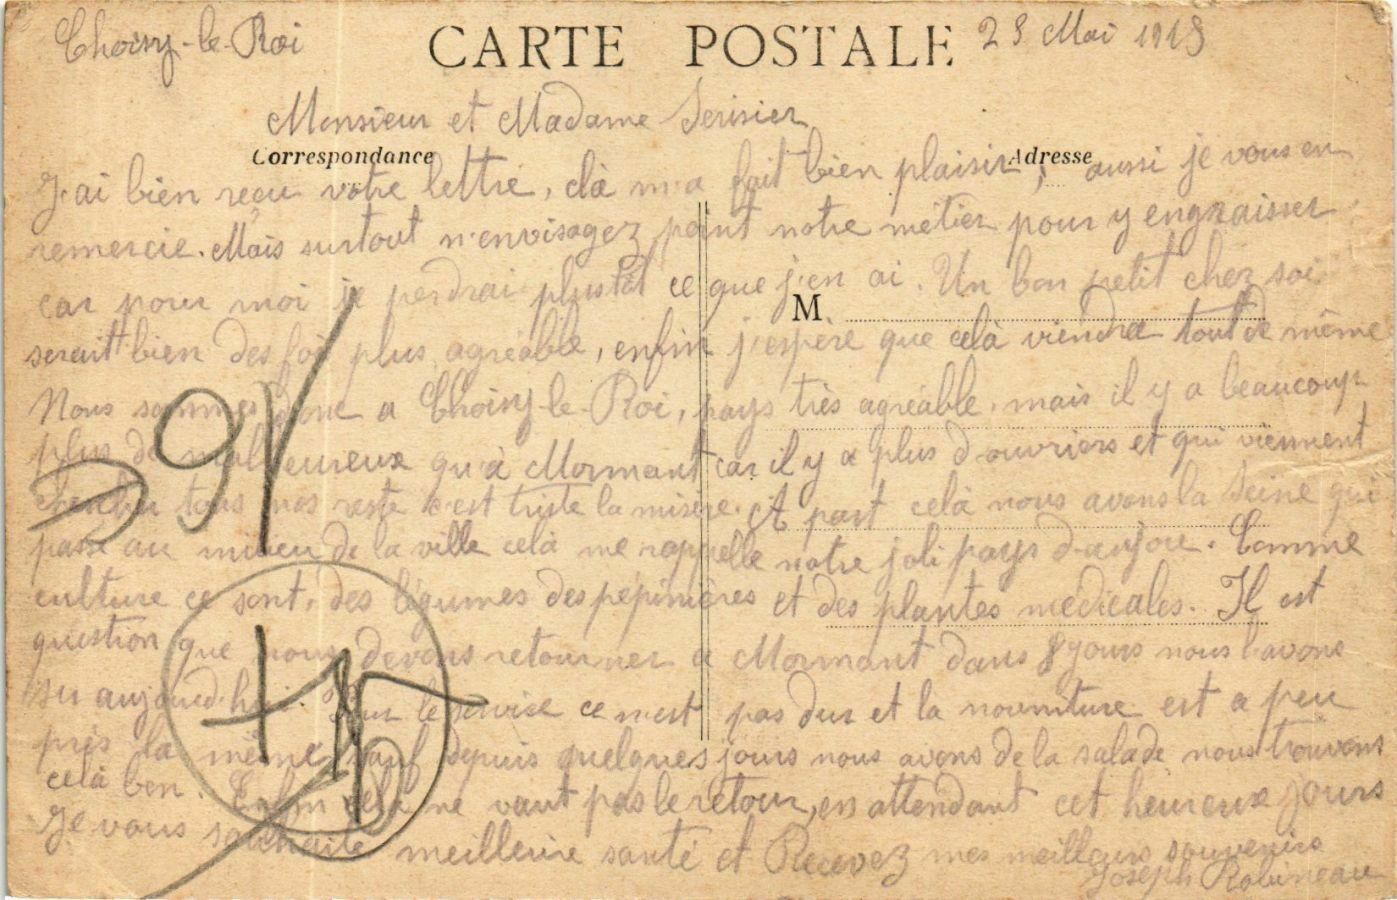 Choisy-le-Roi
CARTE POSTALE
Mai 191
Monsieur et Madame Serisier
Correspondance
Adresse
J'ai bien reçu votre lettre, celà m'a fait bien plaisir, aussi je vous en
remercie. Mais surtout n'envisagez point notre métier pour y engraisser
car pour moi je perdrai plustôt ce que j'en ai. Un bon petit chez soi
M
serait bien des fois plus agréable, enfin j'espère que celà viendra tout de même
Nous sommes donc a Choisy-le-Roi, pays très agréable, mais il y a beaucoup
plus de malheureux qu'à Mormant car il y a plus d'ouvriers et qui viennent
chercher tous nos reste c'est triste la misère. A part celà nous avons la Seine qui
passe au milieu de la ville celà me rappelle notre joli pays d'anjou. Comme
culture ce sont, des légumes des pépinières et des plantes medicales. Il est
question que nous devons retourner a Mormant dans 8 jours nous l'avons
su aujourd'hui. Pour le service ce n'est pas dur et la nourriture est a peu
près la même sauf depuis quelques jours nous avons de la salade nous trouvons
celà bon. Enfin celà ne vaut pas le retour, en attendant cet heureux jours
Je vous souhaite meilleure santé et Recevez mes meilleurs souvenirs
Joseph Robineau